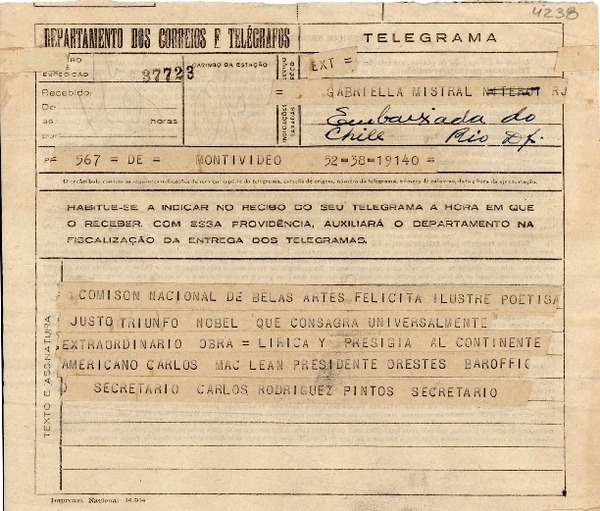 4238
DEPARTAMENTO DOS CORREIOS E TELÉGRAFOS
TELEGRAMA
EXPEDIÇÃO 37723
CARIMBO DA ESTAÇÃO
EXT =
Recebido:
De
às horas
por
INDICAÇÕES TAXADAS
= GABRIELLA MISTRAL NITEROI RJ
Embaixada do
Chile Rio Df.
567 = DE = MONTIVIDEO 52-38-19140 =
HABITUE-SE A INDICAR NO RECIBO DO SEU TELEGRAMA A HORA EM QUE
O RECEBER. COM ESSA PROVIDÊNCIA, AUXILIARÁ O DEPARTAMENTO NA
FISCALIZAÇÃO DA ENTREGA DOS TELEGRAMAS.
TEXTO E ASSINATURA
COMISON NACIONAL DE BELAS ARTES FELICITA ILUSTRE POETISA
JUSTO TRIUNFO NOBEL QUE CONSAGRA UNIVERSALMENTE
EXTRAORDINARIO OBRA = LIRICA Y PRESIGIA AL CONTINENTE
AMERICANO CARLOS MAC LEAN PRESIDENTE ORESTES BAROFFIO
) SECRETARIO CARLOS RODRIGUEZ PINTOS SECRETARIO
Imprensa Nacional